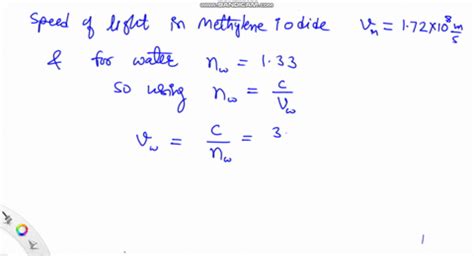 WWW.BANDICAM.COM
Speed of light in methylene Iodide v_m = 1.72×10^8 m/s
& for water n_w = 1.33
so using n_w = c/v_w
v_w = c/n_w = 3.
1